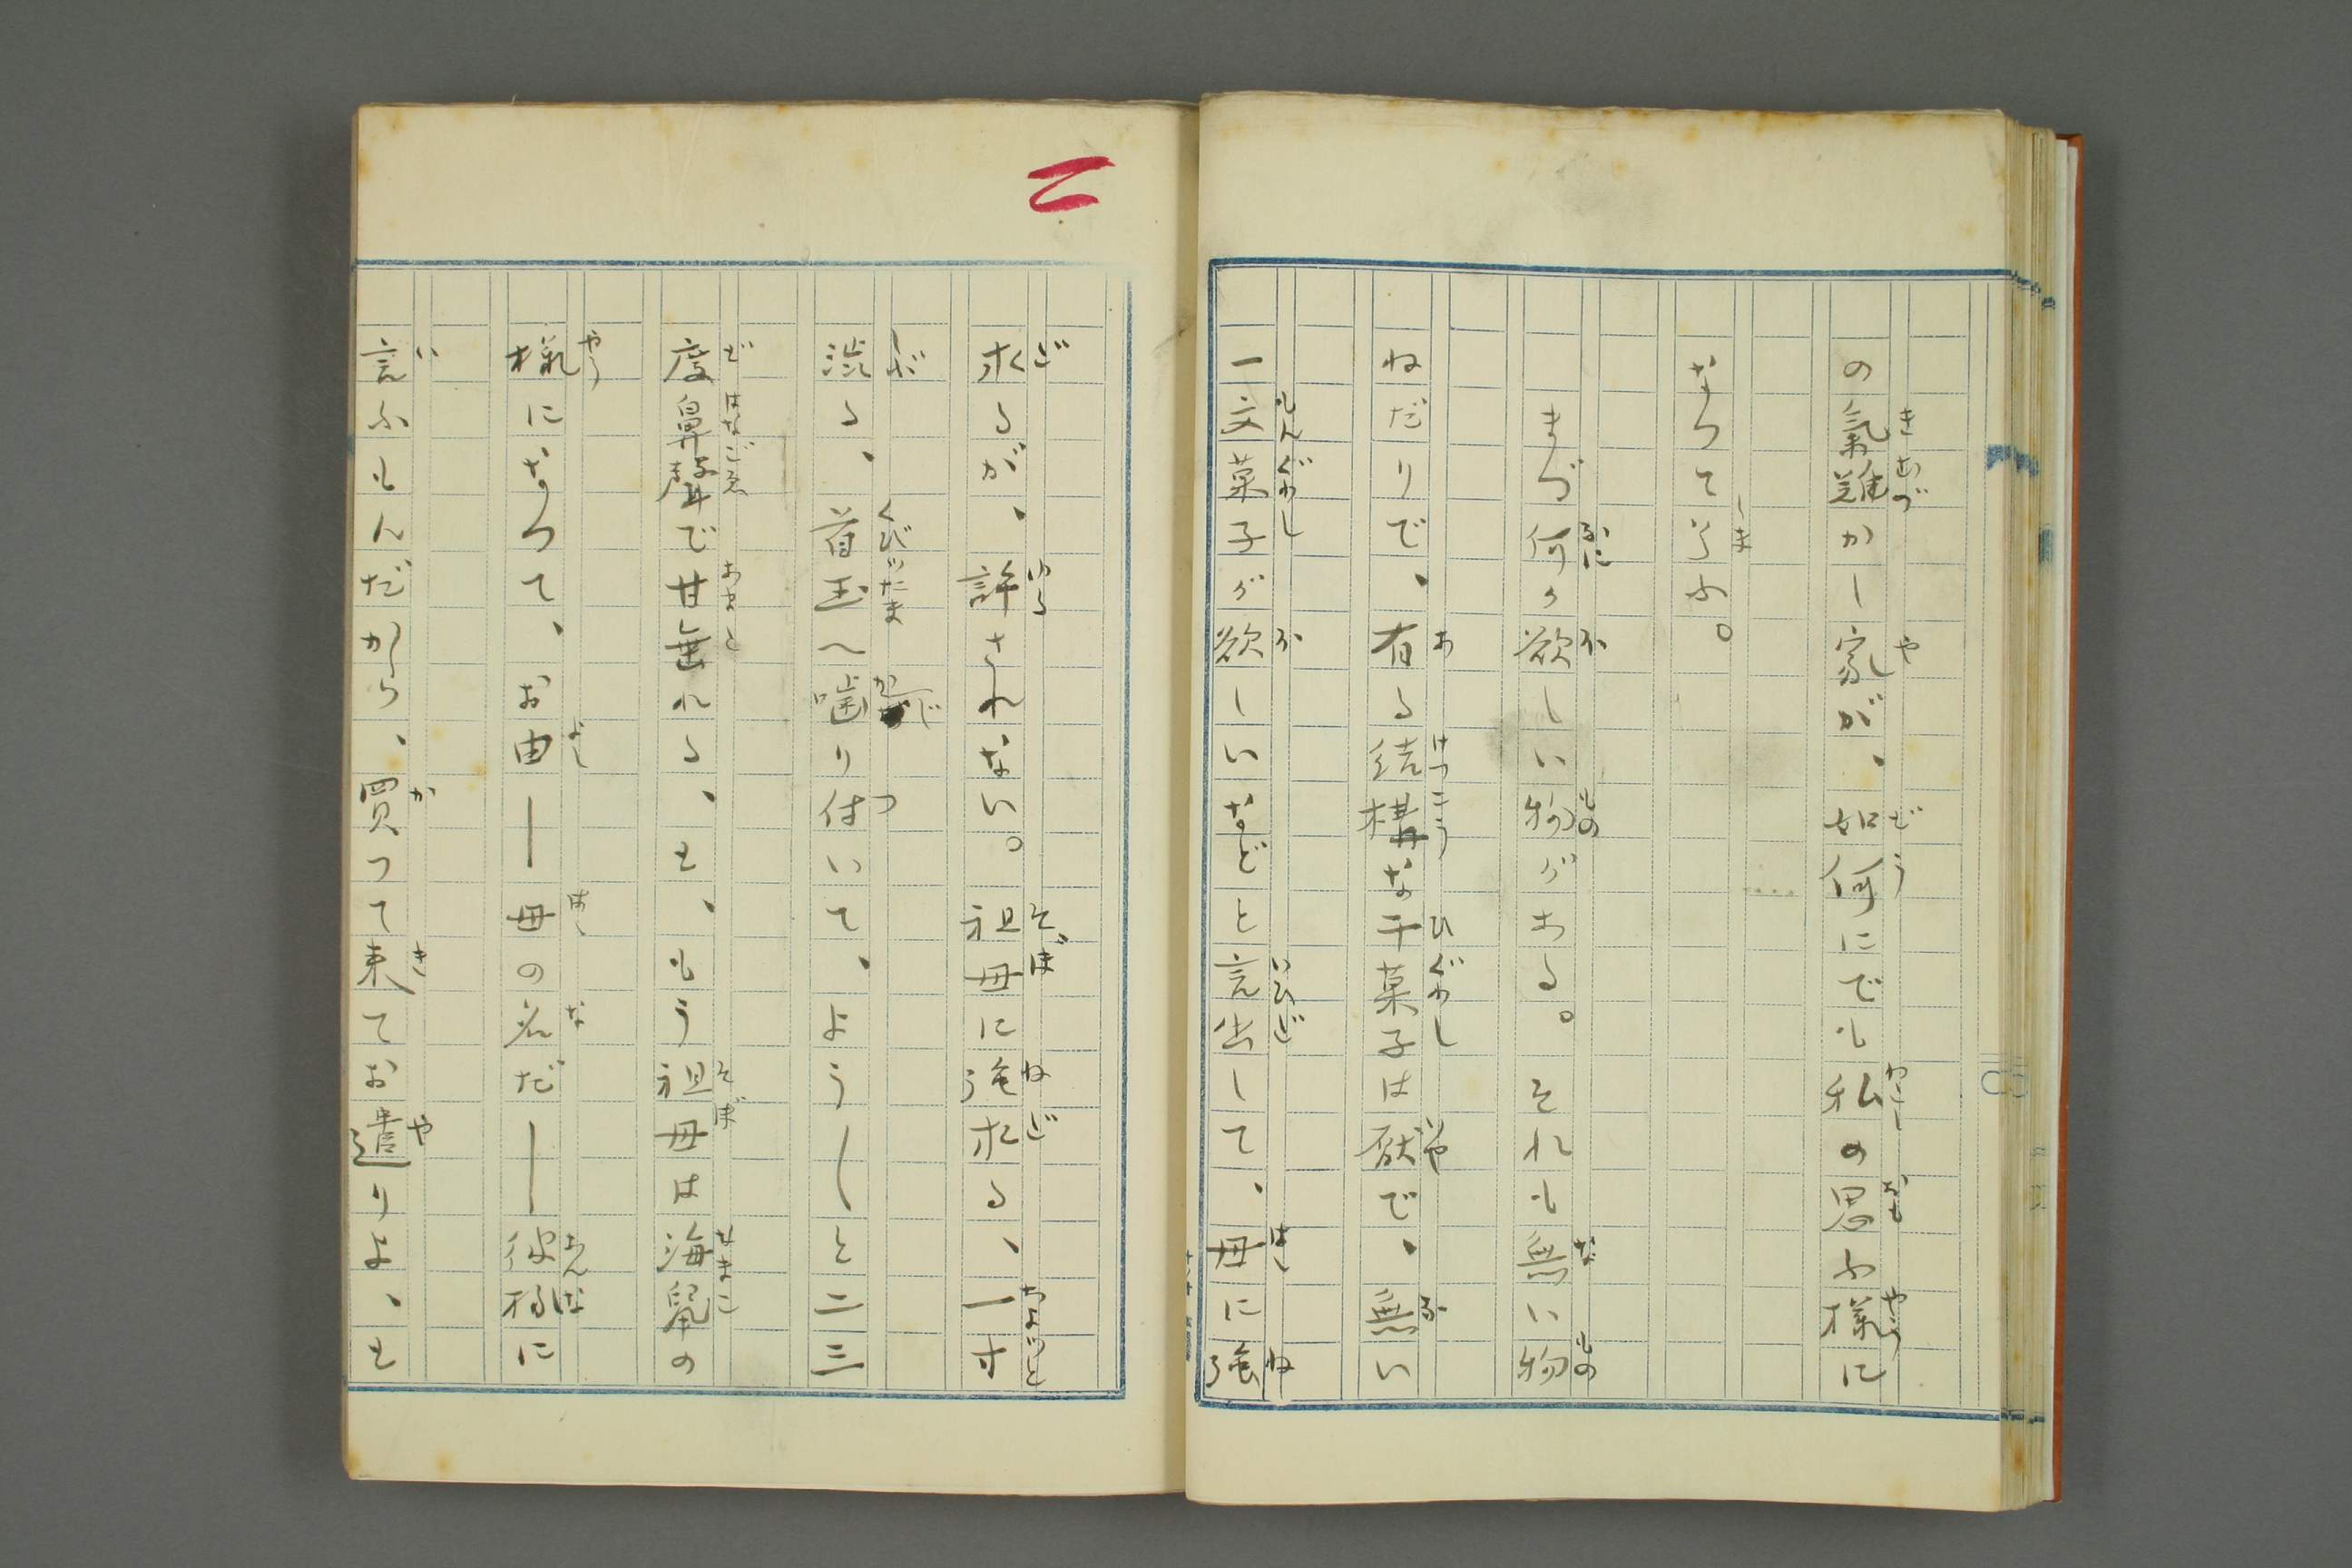 の氣難かし家が、如何にでも私の思ふ様に
なつて了ふ。
まづ何か欲しい物がある。それも無い物
ねだりで、有る結構な干菓子は厭で、無い
一文菓子が欲しいなどと言出して、母に強
求るが、許されない。祖母に強求る、一寸
渋る、首玉へ噛り付いて、ようしと二三
度鼻聲で甘垂れる、と、もう祖母は海鼠の
様になつて、お由―母の名だ―彼様に
言ふもんだから、買つて来てお遣りよ、と